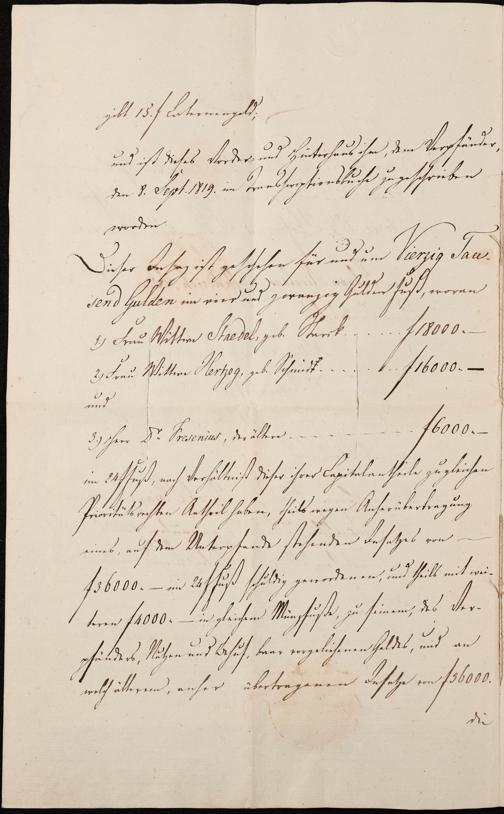 gibt 15.f Laternengeld;
und ist dieses Vorder- und Hinterhaus ihm, dem Verpfänder,
den 8. Sept. 1819. im Transscriptionsbuche zugeschrieben
worden.
Dieser Insatz ist geschehen für und um Vierzig Tau-
send Gulden im vier und zwanzig Gulden Fuß, woran
1.) Frau Wittwe Staedel, geb. Starck . . . . . . f18000.—
2.) Frau Wittwe Hertzog, geb. Schmidt . . . . . f16000.—
und
3.) Herr Dr. Fresenius, der ältere . . . . . . . . f6000.—
im 24 f Fuß, nach Verhältniß dieser ihrer Capitalantheile zu gleichen
Prioritätsrechten Antheil haben, theils wegen Anherübertragung
eines, auf dem Unterpfande stehenden Insatzes von —
f36000.— im 24 f Fuß schuldig gewordenen, und theils mit wei-
teren f4000.— in gleichem Münzfuße, zu seinem, des Ver-
pfänders, Nutzen und Behuf, baar vorgeliehenen Geldes, und an
welch älterem, anher übertragenen Insatze von f36000.
die